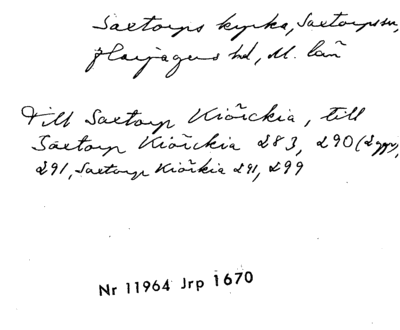 Saxtorps kyrka, Saxtorps sn,
Harjagers hd, M. län
Till Saxtorp Kiörckia, till
Saxtorp Kiörckia 283, 290 (2 ggr),
291, Saxtorp Kiörkia 291, 299
Nr 11964 Jrp 1670